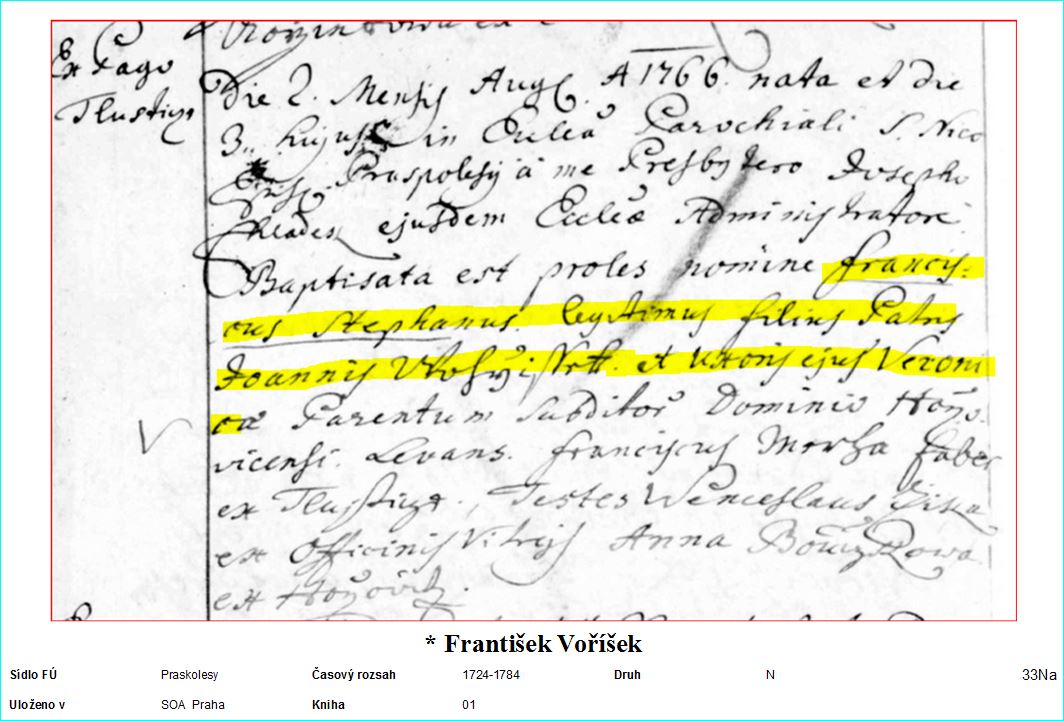 Ex Pago
Tlustiz
die 2. Mensis Aug. A 1766. nata et die
3. hujus in Eccleâ Parochiali S. Nico
Praspolesÿ â me Presbÿtero Josepho
ejusdem Eccleæ Administratore
Baptisata est proles nomine Francis-
cus Stephanus. legitimus filius Patris
Joannis et Uxoris ejus Veroni
cæ Parentum Subditor Dominio
vicensi. Levans. Franciscus Morha faber
ex Tlustiz, Testes Wenceslaus Ziska
ex officinis Vitrejs Anna
ex
* František Voříšek
Sídlo FÚ Praskolesy Časový rozsah 1724-1784 Druh N 33Na
Uloženo v SOA Praha Kniha 01